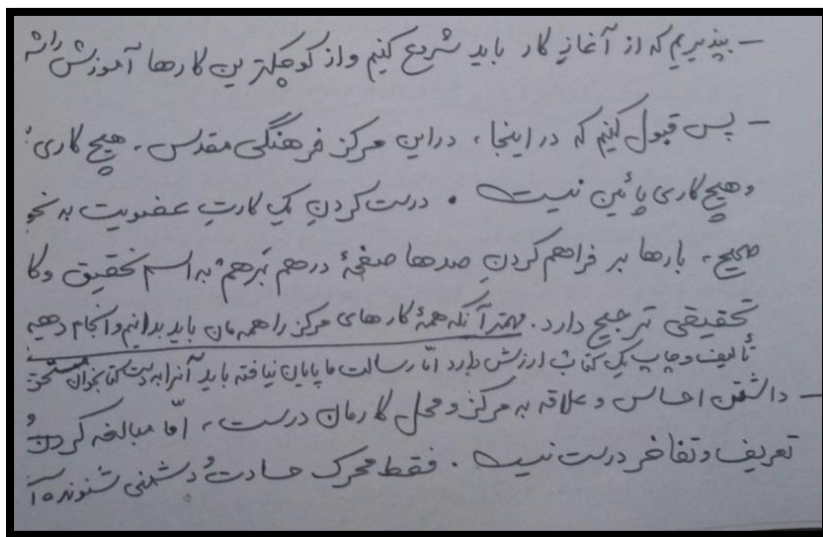 - بپذیریم که از آغازِ کار باید شروع کنیم و از کوچکترین کارها آموزش را
- پس قبول کنیم که در اینجا، در این مرکز فرهنگی مقدس، هیچ کاری
و هیچ کاری پائین نیست. درست کردنِ یک کارتِ عضویت به نحو
صحیح، بارها بر فراهم کردنِ صدها صفحهٔ درهم بَرهم به اسم تحقیق و کا
تحقیقی ترجیح دارد. مهمتر آنکه همهٔ کارهای مرکز را همه‌مان باید بدانیم و انجام دهیم
تألیف و چاپ یک کتاب ارزش دارد امّا رسالت ما پایان نیافته باید آنرا به دست کتابخوان مستحق
- داشتن احساس و علاقه به مرکز و محل کارمان درست، امّا مبالغه کردن و
تعریف و تفاخر درست نیست. فقط محرک حسادت و دشمنی شنونده